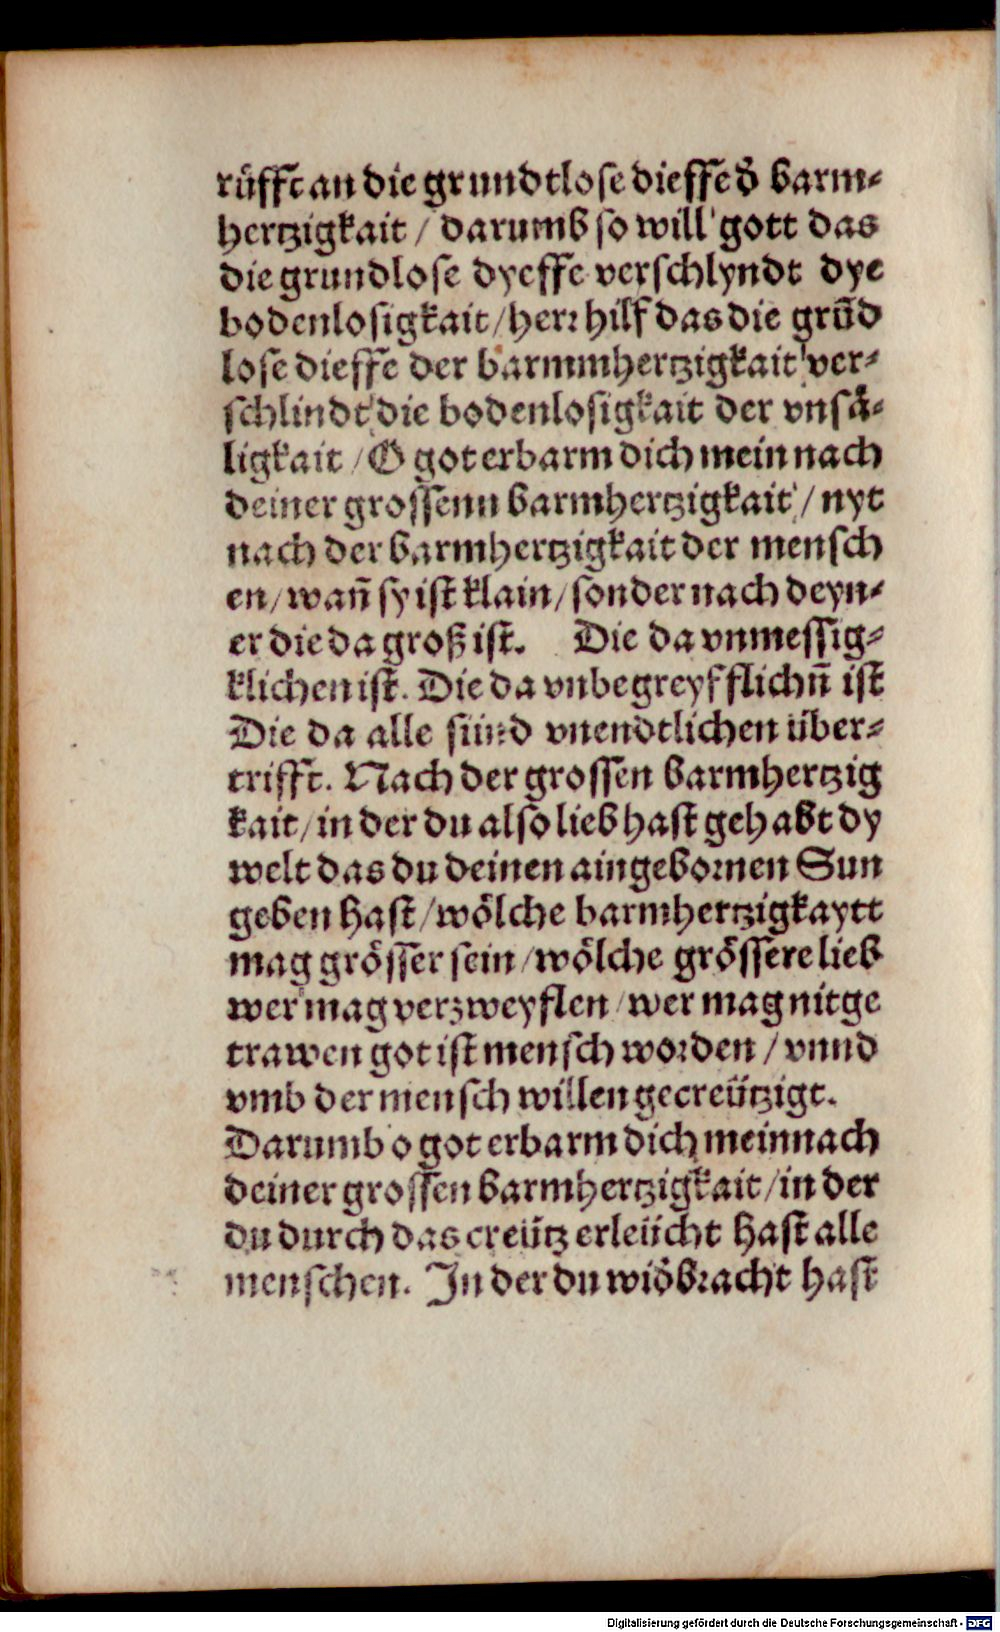 rüfft an die grundtlose dieffe d̕ barm-
hertzigkait / darumb so will gott das
die grundlose dyeffe verschlyndt dye
bodenlosigkait / herr hilf das die grūd
lose dieffe der barmmhertzigkait ver-
schlindt die bodenlosigkait der vnså-
ligkait / O got erbarm dich mein nach
deiner grossenn barmhertzigkait / nyt
nach der barmhertzigkait der mensch
en / wañ sy ist klain / sonder nach deyn-
er die da groß ist. Die da vnmessig-
klichen ist. Die da vnbegreyfflichñ ist
Die da alle sünd vnendtlichen über-
trifft. Nach der grossen barmhertzig
kait / in der du also lieb hast gehabt dy
welt das du deinen aingebornen Sun
geben hast / wölche barmhertzigkaytt
mag grösser sein / wölche grössere lieb
wer mag verzweyflen / wer mag nit ge
trawen got ist mensch worden / vnnd
vmb der mensch willen gecreützigt.
Darumb o got erbarm dich mein nach
deiner grossen barmhertzigkait / in der
du durch das creütz erleücht hast alle
menschen. In der du wid̕bracht hast
Digitalisierung gefördert durch die Deutsche Forschungsgemeinschaft - DFG